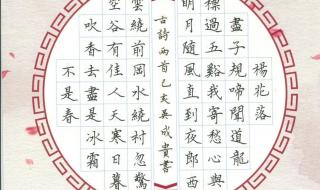 楊花落
盡子規啼聞道龍
標過五谿我寄愁心與
明月隨風直到夜郎西
古詩兩首己亥吳成貴書
雲繞前岡水繞村忽驚
空谷有佳人天寒日暮
吹香去盡是冰霜
不是春